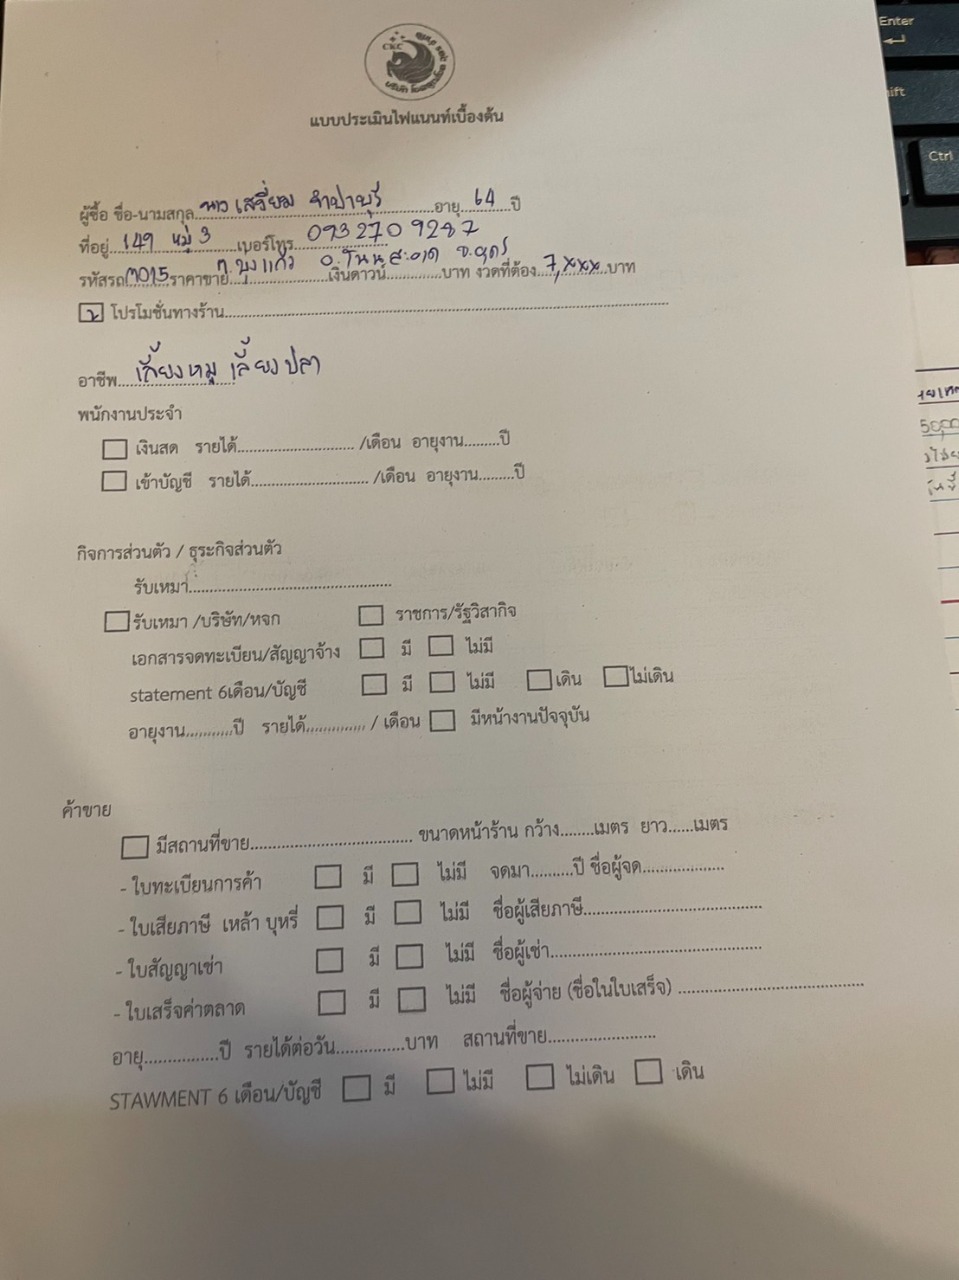 CKC
แบบประเมินไฟแนนท์เบื้องต้น
ผู้ซื้อ ชื่อ-นามสกุล นาง เสงี่ยม จำปาบุรี อายุ 64 ปี
ที่อยู่ 149 หมู่ 3 เบอร์โทร 0932709287
ต.บุงแก้ว อ.โนนสะอาด จ.อุดร
รหัสรถ ๆ015 ราคาขาย เงินดาวน์ บาท งวดที่ต้อง 7,xxx บาท
โปรโมชั่นทางร้าน
อาชีพ เลี้ยงหมู เลี้ยงปลา
พนักงานประจำ
เงินสด รายได้ /เดือน อายุงาน ปี
เข้าบัญชี รายได้ /เดือน อายุงาน ปี
กิจการส่วนตัว / ธุระกิจส่วนตัว
รับเหมา
รับเหมา /บริษัท/หจก ราชการ/รัฐวิสากิจ
เอกสารจดทะเบียน/สัญญาจ้าง มี ไม่มี
statement 6เดือน/บัญชี มี ไม่มี เดิน ไม่เดิน
อายุงาน ปี รายได้ / เดือน มีหน้างานปัจจุบัน
ค้าขาย
มีสถานที่ขาย ขนาดหน้าร้าน กว้าง เมตร ยาว เมตร
- ใบทะเบียนการค้า มี ไม่มี จดมา ปี ชื่อผู้จด
- ใบเสียภาษี เหล้า บุหรี่ มี ไม่มี ชื่อผู้เสียภาษี
- ใบสัญญาเช่า มี ไม่มี ชื่อผู้เช่า
- ใบเสร็จค่าตลาด มี ไม่มี ชื่อผู้จ่าย (ชื่อในใบเสร็จ)
อายุ ปี รายได้ต่อวัน บาท สถานที่ขาย
STAWMENT 6 เดือน/บัญชี มี ไม่มี ไม่เดิน เดิน
Enter
Ctrl